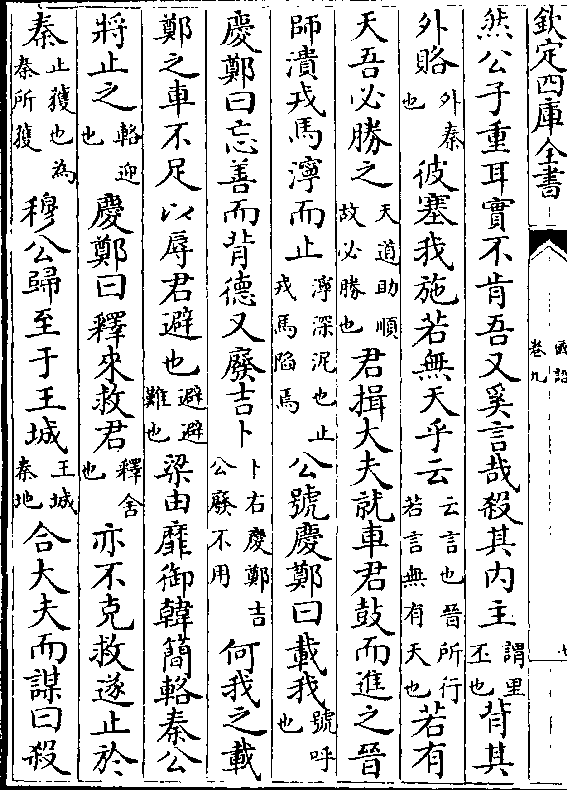 欽定四庫全書
國語
卷九
七
然公子重耳實不肯吾又奚言哉殺其内主謂里丕也背其
外賂外秦也彼塞我施若無天乎云云言也晉所行若言無有天也若有
天吾必勝之天道助順故必勝也君揖大夫就車君鼓而進之晉
師潰戎馬濘而止濘深泥也止戎馬陷焉公號慶鄭曰載我號呼也
慶鄭曰忘善而背德又廢吉卜卜右慶鄭吉公廢不用何我之載
鄭之車不足以辱君避也避避難也梁由靡御韓簡輅秦公
將止之輅迎也慶鄭曰釋來救君釋舍也亦不克救遂止於
秦止獲也為秦所獲穆公歸至于王城王城秦地合大夫而謀曰殺